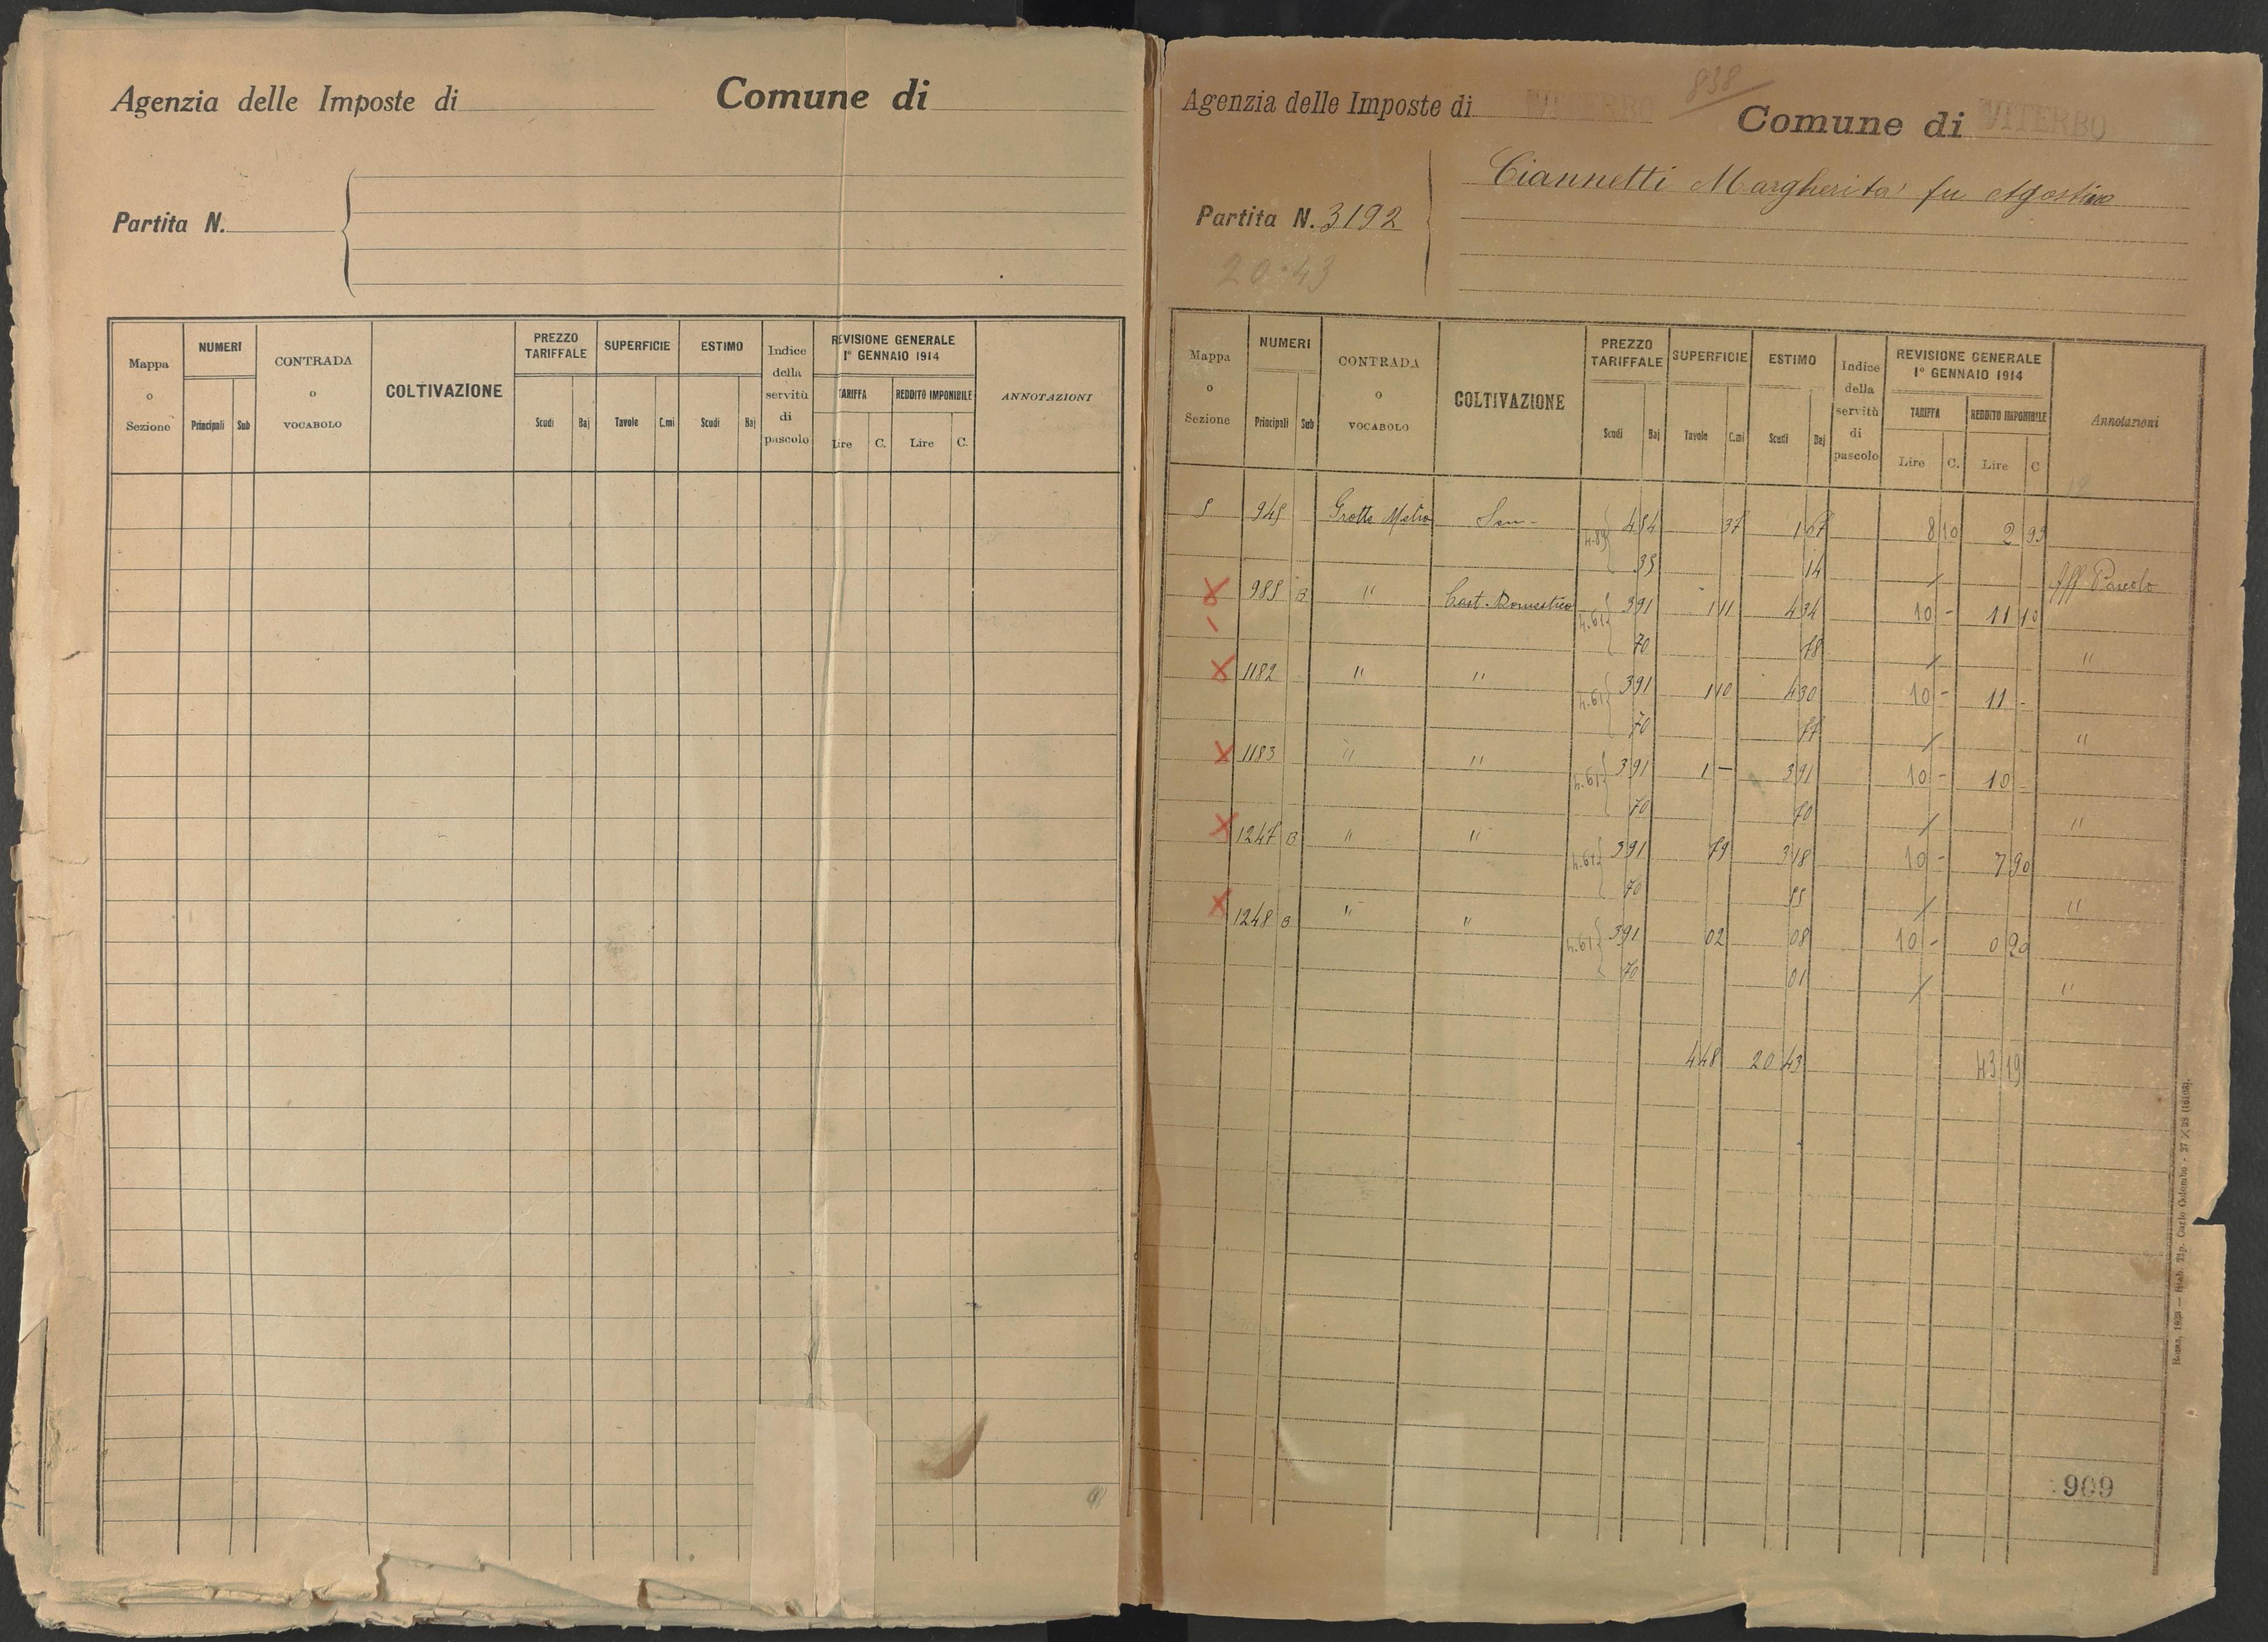 Agenzia delle Imposte di Comune di
Partita N.
Mappa o Sezione NUMERI Principali Sub CONTRADA o VOCABOLO COLTIVAZIONE PREZZO TARIFFALE Scudi Baj SUPERFICIE Tavole C.mi ESTIMO Scudi Baj Indice della servitù di pascolo REVISIONE GENERALE 1° GENNAIO 1914 TARIFFA Lire C. REDDITO IMPONIBILE Lire C. ANNOTAZIONI
838
Agenzia delle Imposte di VITERBO Comune di VITERBO
Ciannetti Margherita fu Agostino
Partita N. 3192
20.43
Mappa o Sezione NUMERI Principali Sub CONTRADA o VOCABOLO COLTIVAZIONE PREZZO TARIFFALE Scudi Baj SUPERFICIE Tavole C.mi ESTIMO Scudi Baj Indice della servitù di pascolo REVISIONE GENERALE 1° GENNAIO 1914 TARIFFA Lire C. REDDITO IMPONIBILE Lire C Annotazioni
5 945 Grotte Sem- 4.89 4 54 37 1 67 8 10 2 99
35 14 / Aff Pascolo
X 985 B " Cast. Domestico 4.61 3 91 1 11 4 34 10 - 11 10
70 78 / "
X 1182 " " 4.61 3 91 1 10 4 30 10 - 11 -
70 77 / "
X 1183 " " 4.61 3 91 1 - 3 91 10 - 10 -
70 70 / "
X 1247 B " " 4.61 3 91 79 3 18 10 - 7 90
70 55 / "
X 1248 B " " 4.61 3 91 02 08 10 - 0 20
70 01 / "
4 48 20 43 43 19
909